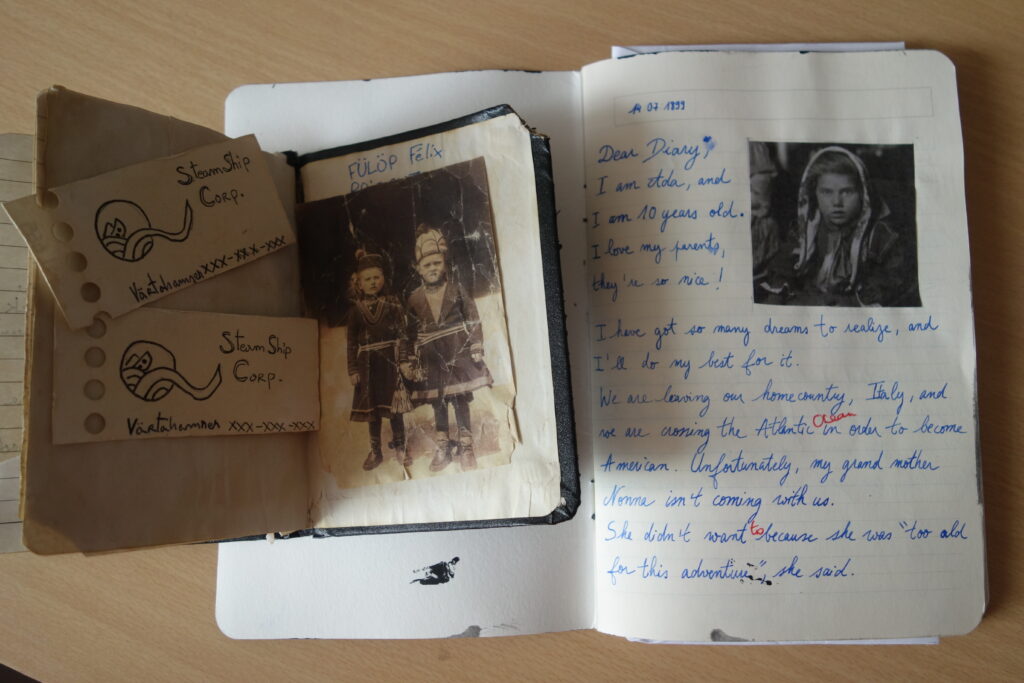 SteamShip
Corp.
Värtahamnen XXX-XXX-XXX
SteamShip
Corp.
Värtahamnen XXX-XXX-XXX
FÜLÖP Félix
14 07 1899
Dear Diary,
I am Ada, and
I am 10 years old.
I love my parents,
they're so nice!
I have got so many dreams to realize, and
I'll do my best for it.
We are leaving our homecountry, Italy, and
we are crossing the Atlantic Ocean in order to become
American. Unfortunately, my grand mother
Nonna isn't coming with us.
She didn't want to because she was "too old
for this adventure", she said.